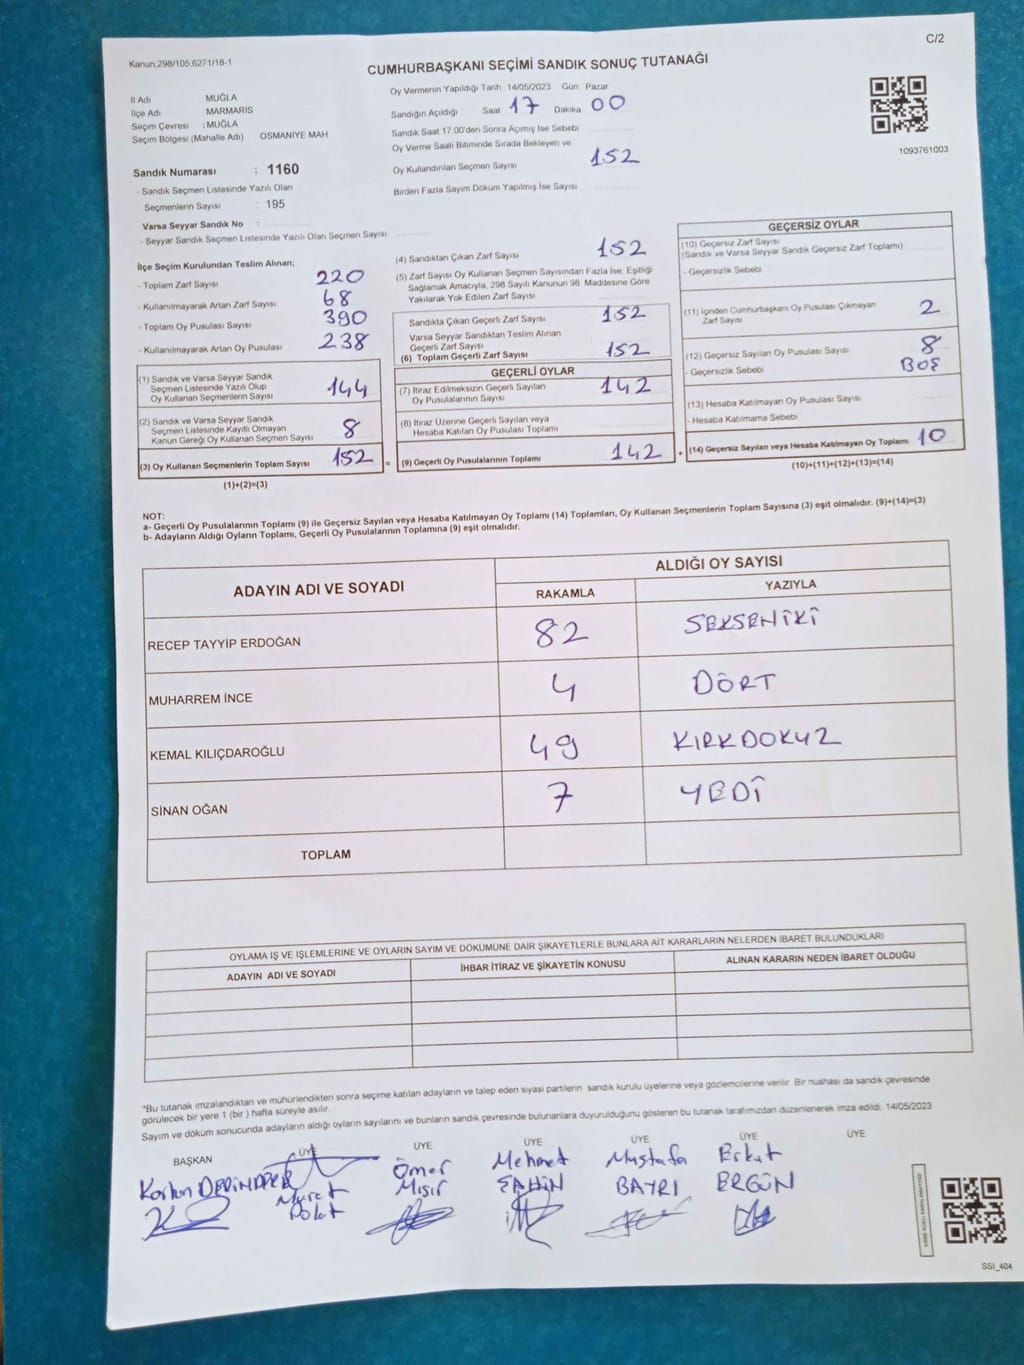 C/2
Kanun,298/105,6271/18-1
CUMHURBAŞKANI SEÇİMİ SANDIK SONUÇ TUTANAĞI
İl Adı MUĞLA
İlçe Adı MARMARİS
Seçim Çevresi : MUĞLA
Seçim Bölgesi (Mahalle Adı) OSMANİYE MAH
Sandık Numarası : 1160
- Sandık Seçmen Listesinde Yazılı Olan
Seçmenlerin Sayısı : 195
Varsa Seyyar Sandık No :
- Seyyar Sandık Seçmen Listesinde Yazılı Olan Seçmen Sayısı
Oy Vermenin Yapıldığı Tarih 14/05/2023 Gün Pazar
Sandığın Açıldığı Saat 17 Dakika 00
Sandık Saat 17:00'den Sonra Açılmış İse Sebebi
Oy Verme Saati Bitiminde Sırada Bekleyen ve
Oy Kullandırılan Seçmen Sayısı 152
Birden Fazla Sayım Döküm Yapılmış İse Sayısı
1093761003
İlçe Seçim Kurulundan Teslim Alınan;
- Toplam Zarf Sayısı 220
- Kullanılmayarak Artan Zarf Sayısı 68
- Toplam Oy Pusulası Sayısı 390
- Kullanılmayarak Artan Oy Pusulası 238
(1) Sandık ve Varsa Seyyar Sandık
Seçmen Listesinde Yazılı Olup
Oy Kullanan Seçmenlerin Sayısı 144
(2) Sandık ve Varsa Seyyar Sandık
Seçmen Listesinde Kayıtlı Olmayan
Kanun Gereği Oy Kullanan Seçmen Sayısı 8
(3) Oy Kullanan Seçmenlerin Toplam Sayısı 152 =
(1)+(2)=(3)
(4) Sandıktan Çıkan Zarf Sayısı 152
(5) Zarf Sayısı Oy Kullanan Seçmen Sayısından Fazla İse, Eşitliği
Sağlamak Amacıyla, 298 Sayılı Kanunun 98. Maddesine Göre
Yakılarak Yok Edilen Zarf Sayısı
Sandıkta Çıkan Geçerli Zarf Sayısı 152
Varsa Seyyar Sandıktan Teslim Alınan
Geçerli Zarf Sayısı
(6) Toplam Geçerli Zarf Sayısı 152
GEÇERLİ OYLAR
(7) İtiraz Edilmeksizin Geçerli Sayılan
Oy Pusulalarının Sayısı 142
(8) İtiraz Üzerine Geçerli Sayılan veya
Hesaba Katılan Oy Pusulası Toplamı
(9) Geçerli Oy Pusulalarının Toplamı 142 +
GEÇERSİZ OYLAR
(10) Geçersiz Zarf Sayısı
(Sandık ve Varsa Seyyar Sandık Geçersiz Zarf Toplamı)
- Geçersizlik Sebebi
(11) İçinden Cumhurbaşkanı Oy Pusulası Çıkmayan
Zarf Sayısı 2
(12) Geçersiz Sayılan Oy Pusulası Sayısı 8
- Geçersizlik Sebebi BOŞ
(13) Hesaba Katılmayan Oy Pusulası Sayısı
- Hesaba Katılmama Sebebi
(14) Geçersiz Sayılan veya Hesaba Katılmayan Oy Toplamı 10
(10)+(11)+(12)+(13)=(14)
NOT:
a- Geçerli Oy Pusulalarının Toplamı (9) ile Geçersiz Sayılan veya Hesaba Katılmayan Oy Toplamı (14) Toplamları, Oy Kullanan Seçmenlerin Toplam Sayısına (3) eşit olmalıdır. (9)+(14)=(3)
b- Adayların Aldığı Oyların Toplamı, Geçerli Oy Pusulalarının Toplamına (9) eşit olmalıdır.
ADAYIN ADI VE SOYADI ALDIĞI OY SAYISI
RAKAMLA YAZIYLA
RECEP TAYYİP ERDOĞAN 82 SEKSENİKİ
MUHARREM İNCE 4 DÖRT
KEMAL KILIÇDAROĞLU 49 KIRKDOKUZ
SİNAN OĞAN 7 YEDİ
TOPLAM
OYLAMA İŞ VE İŞLEMLERİNE VE OYLARIN SAYIM VE DÖKÜMÜNE DAİR ŞİKAYETLERLE BUNLARA AİT KARARLARIN NELERDEN İBARET BULUNDUKLARI
ADAYIN ADI VE SOYADI İHBAR İTİRAZ VE ŞİKAYETİN KONUSU ALINAN KARARIN NEDEN İBARET OLDUĞU
*Bu tutanak imzalandıktan ve mühürlendikten sonra seçime katılan adayların ve talep eden siyasi partilerin sandık kurulu üyelerine veya gözlemcilerine verilir. Bir nüshası da sandık çevresinde
görülecek bir yere 1 (bir ) hafta süreyle asılır.
Sayım ve döküm sonucunda adayların aldığı oyların sayılarını ve bunların sandık çevresinde bulunanlara duyurulduğunu gösteren bu tutanak tarafımızdan düzenlenerek imza edildi. 14/05/2023
BAŞKAN ÜYE ÜYE ÜYE ÜYE ÜYE ÜYE
Murat Polat
Ömer Mısır
Mehmet ŞAHİN
Mustafa BAYRI
Erkut ERGÜN
SSI_404